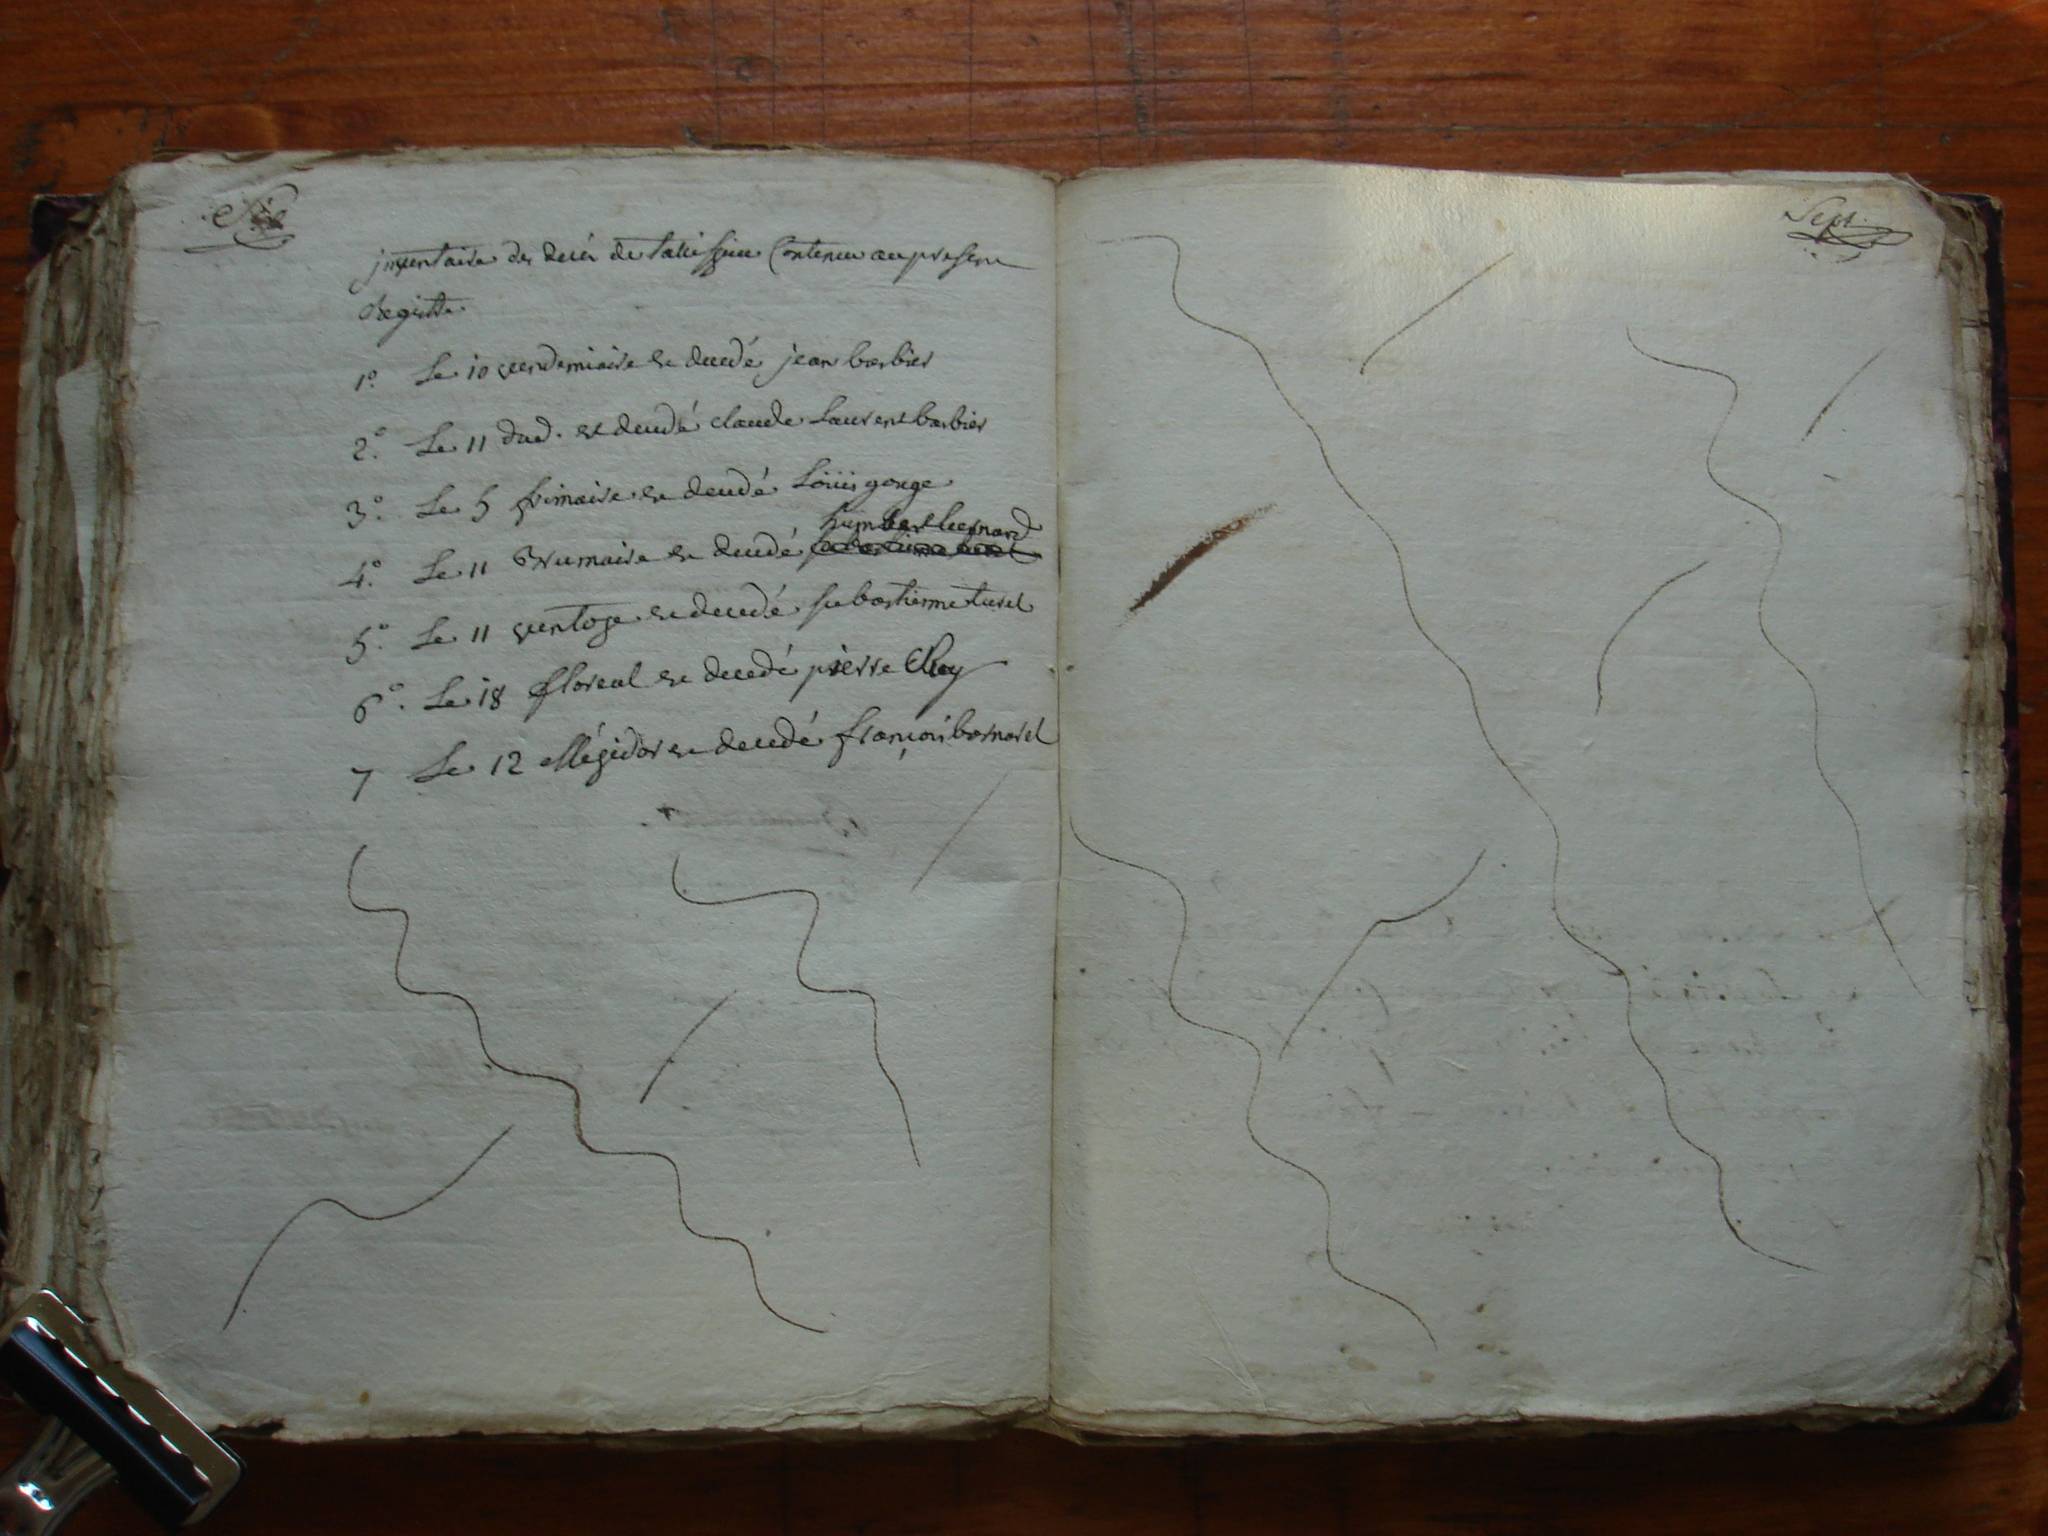 Six
jnventaire des decés de Talissieu Contenu au present
Registre
1.° Le 10 vendemiaire est decedé jean barbier
2.° Le 11 dud. est decedé claude Laurent barbier
3.° Le 5 frimaire est decedé Loüis gonge
humbert bernard
4.° Le 11 Brumaire est decedé
5.° Le 11 ventose est decedé sebastienne
6.° Le 18 floreal est decedé pierre Rey
7 Le 12 Mésidor est decedé françois bernard
Sept